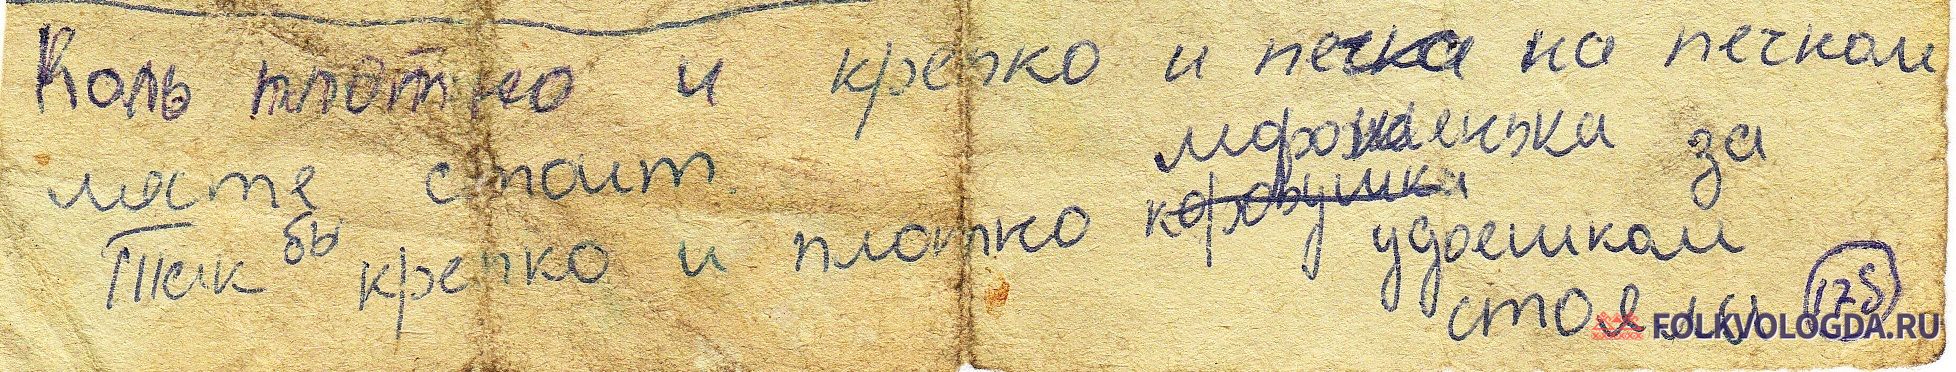 Коль плотно и крепко и печка на печном
мясте стоит.
за
Так бы крепко и плотно коровушка удоешком
стояла 175
FOLKVOLOGDA.RU